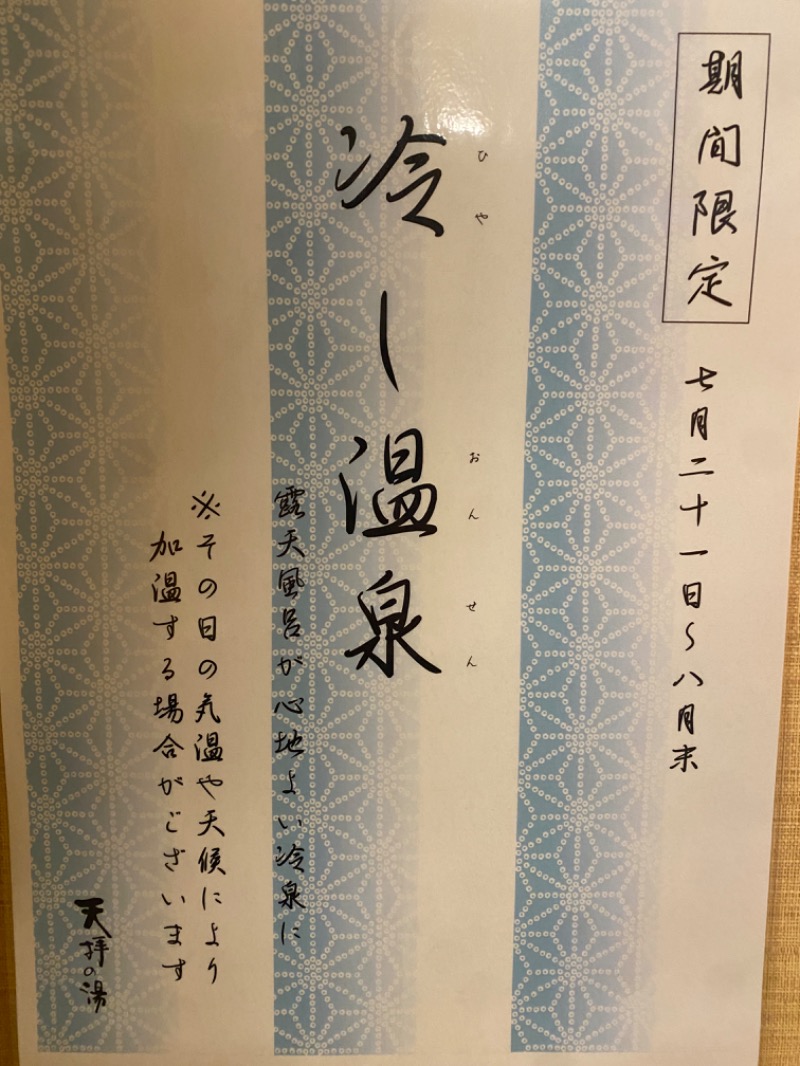 期間限定
七月二十一日〜八月末
ひやおんせん
冷し温泉
露天風呂が心地よい冷泉に
※その日の気温や天候により
加温する場合がございます
天拝の湯